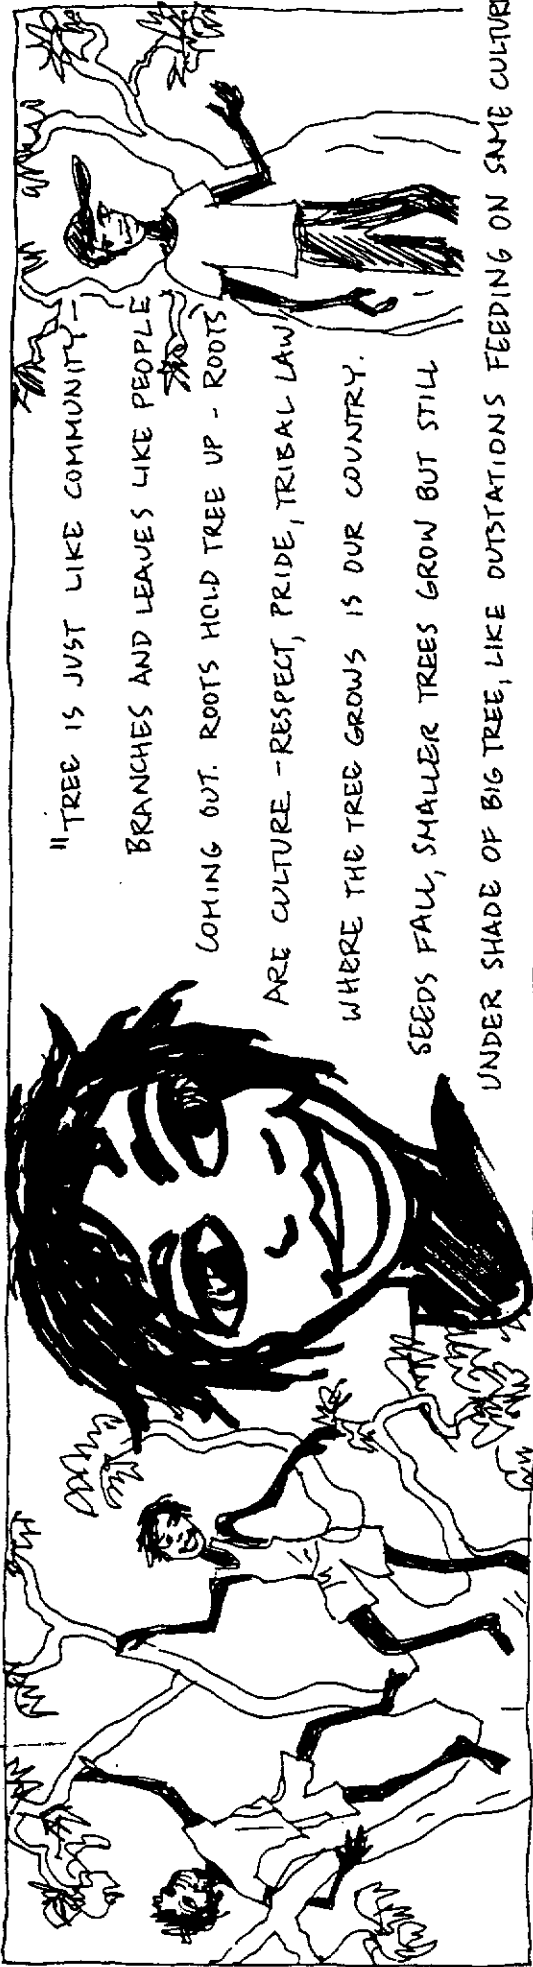 "TREE IS JUST LIKE COMMUNITY -
BRANCHES AND LEAVES LIKE PEOPLE
COMING OUT. ROOTS HOLD TREE UP - ROOTS
ARE CULTURE - RESPECT, PRIDE, TRIBAL LAW
WHERE THE TREE GROWS IS OUR COUNTRY.
SEEDS FALL, SMALLER TREES GROW BUT STILL
UNDER SHADE OF BIG TREE, LIKE OUTSTATIONS FEEDING ON SAME CULTUR